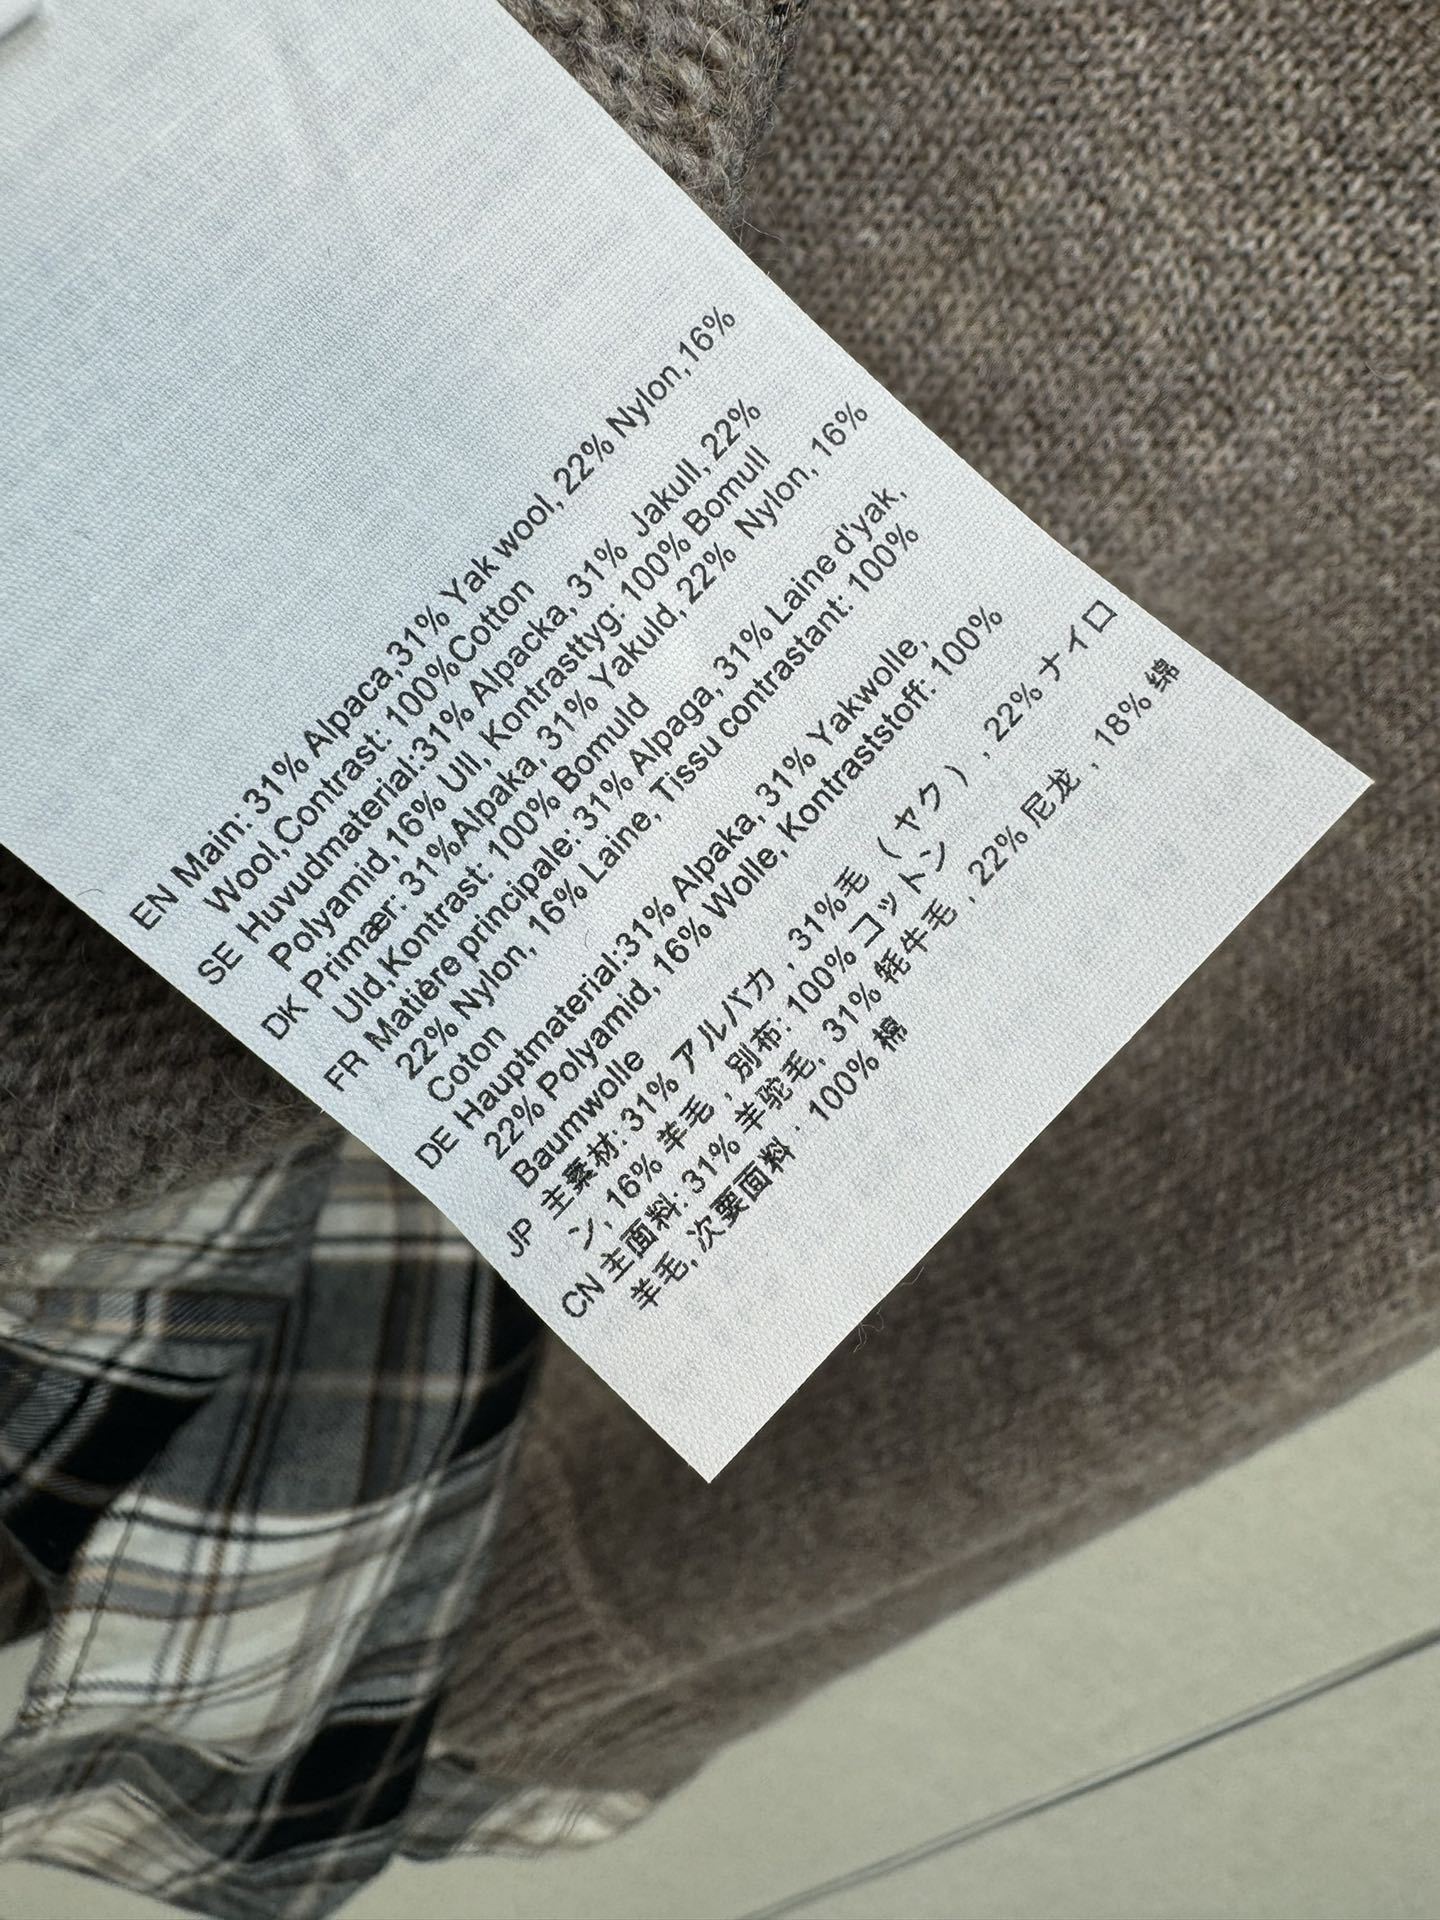 EN Main: 31% Alpaca,31% Yak wool, 22% Nylon,16%
Wool,Contrast: 100%Cotton
SE Huvudmaterial:31% Alpacka, 31% Jakull, 22%
Polyamid, 16% Ull, Kontrasttyg: 100% Bomull
DK Primær: 31%Alpaka, 31% Yakuld, 22% Nylon, 16%
Uld,Kontrast: 100% Bomuld
FR Matière principale: 31% Alpaga, 31% Laine d'yak,
22% Nylon, 16% Laine, Tissu contrastant: 100%
Coton
DE Hauptmaterial:31% Alpaka, 31% Yakwolle,
22% Polyamid, 16% Wolle, Kontraststoff: 100%
Baumwolle
JP 主素材: 31% アルバカ , 31%毛 (ヤク) , 22% ナイロ
ン, 16% 羊毛 , 別布: 100% コットン
CN 主面料: 31% 羊驼毛, 31% 牦牛毛 , 22% 尼龙 , 18% 绵
羊毛, 次要面料 : 100% 棉